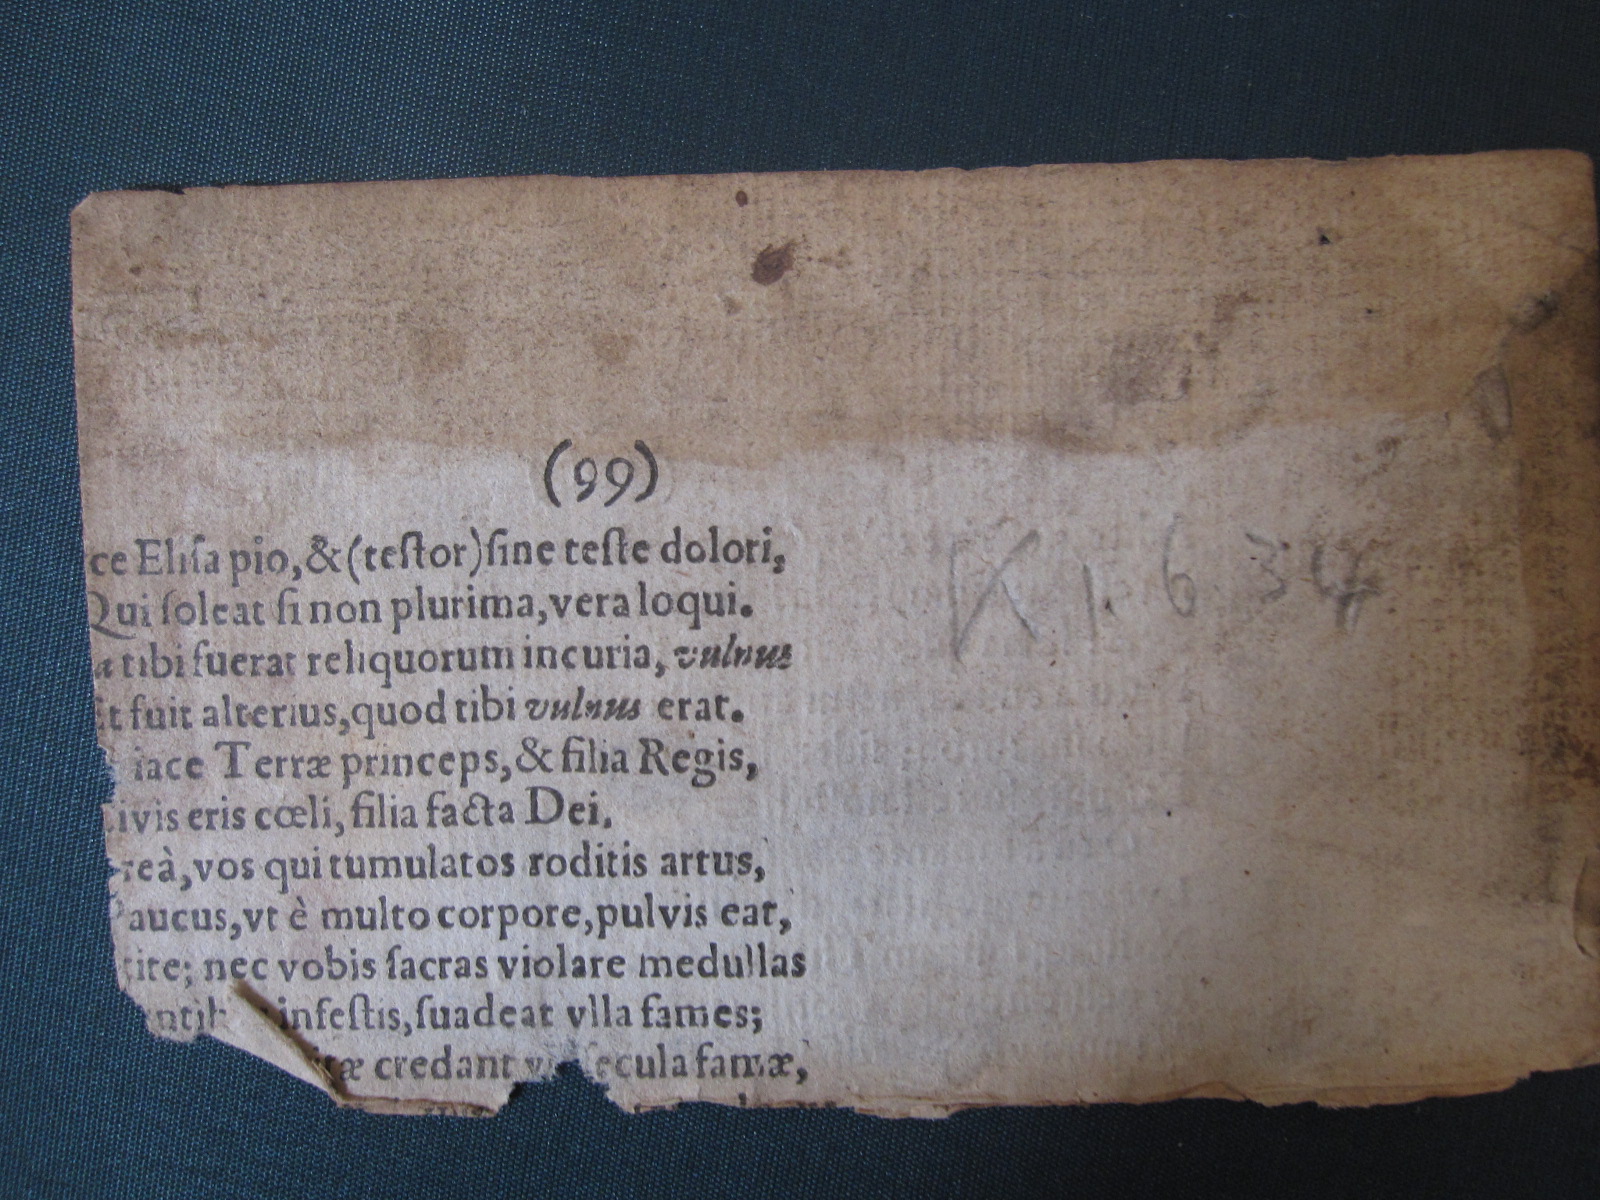 (99)
ce Elisa pio, & (testor) sine teste dolori,
Qui soleat si non plurima, vera loqui.
tibi fuerat reliquorum incuria, vulnus
fuit alterius, quod tibi vulnus erat.
iace Terræ princeps, & filia Regis,
ivis eris cœli, filia facta Dei.
reà, vos qui tumulatos roditis artus,
Paucus, vt è multo corpore, pulvis eat,
ite; nec vobis sacras violare medullas
infestis, suadeat vlla fames;
credant secula famæ,
K 1634